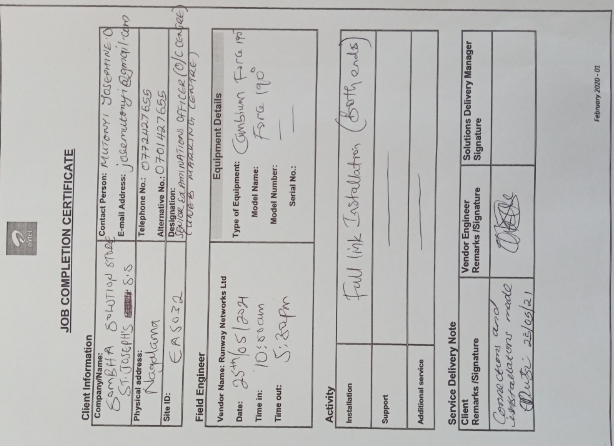 airtel
JOB COMPLETION CERTIFICATE
Client Information
Company/Name:
SAMBHA SOLUTION STORE
ST. JOSEPH'S S.S
Contact Person: MUTONYI JOSEPHINE O
E-mail Address: josemutonyi@gmail.com
Physical address:
Nagalama
Telephone No.: 0772427655
Alternative No.: 0701427655
Site ID: EAS032
Designation:
SENIOR EXAMINATIONS OFFICER (O/C CENTRE)
(UNEB MARKING CENTRE)
Field Engineer
Vendor Name: Runway Networks Ltd
Date: 25th/05/2021
Time in: 10:00am
Time out: 5:30pm
Equipment Details
Type of Equipment: Cambium Force 190
Model Name: Force 190
Model Number:
Serial No.:
Activity
Installation
Full link Installation (Both ends)
Support
Additional service
Service Delivery Note
Client
Remarks /Signature
Connections and
installations made
25/05/21
Vendor Engineer
Remarks /Signature
Solutions Delivery Manager
Signature
February 2020 - 01